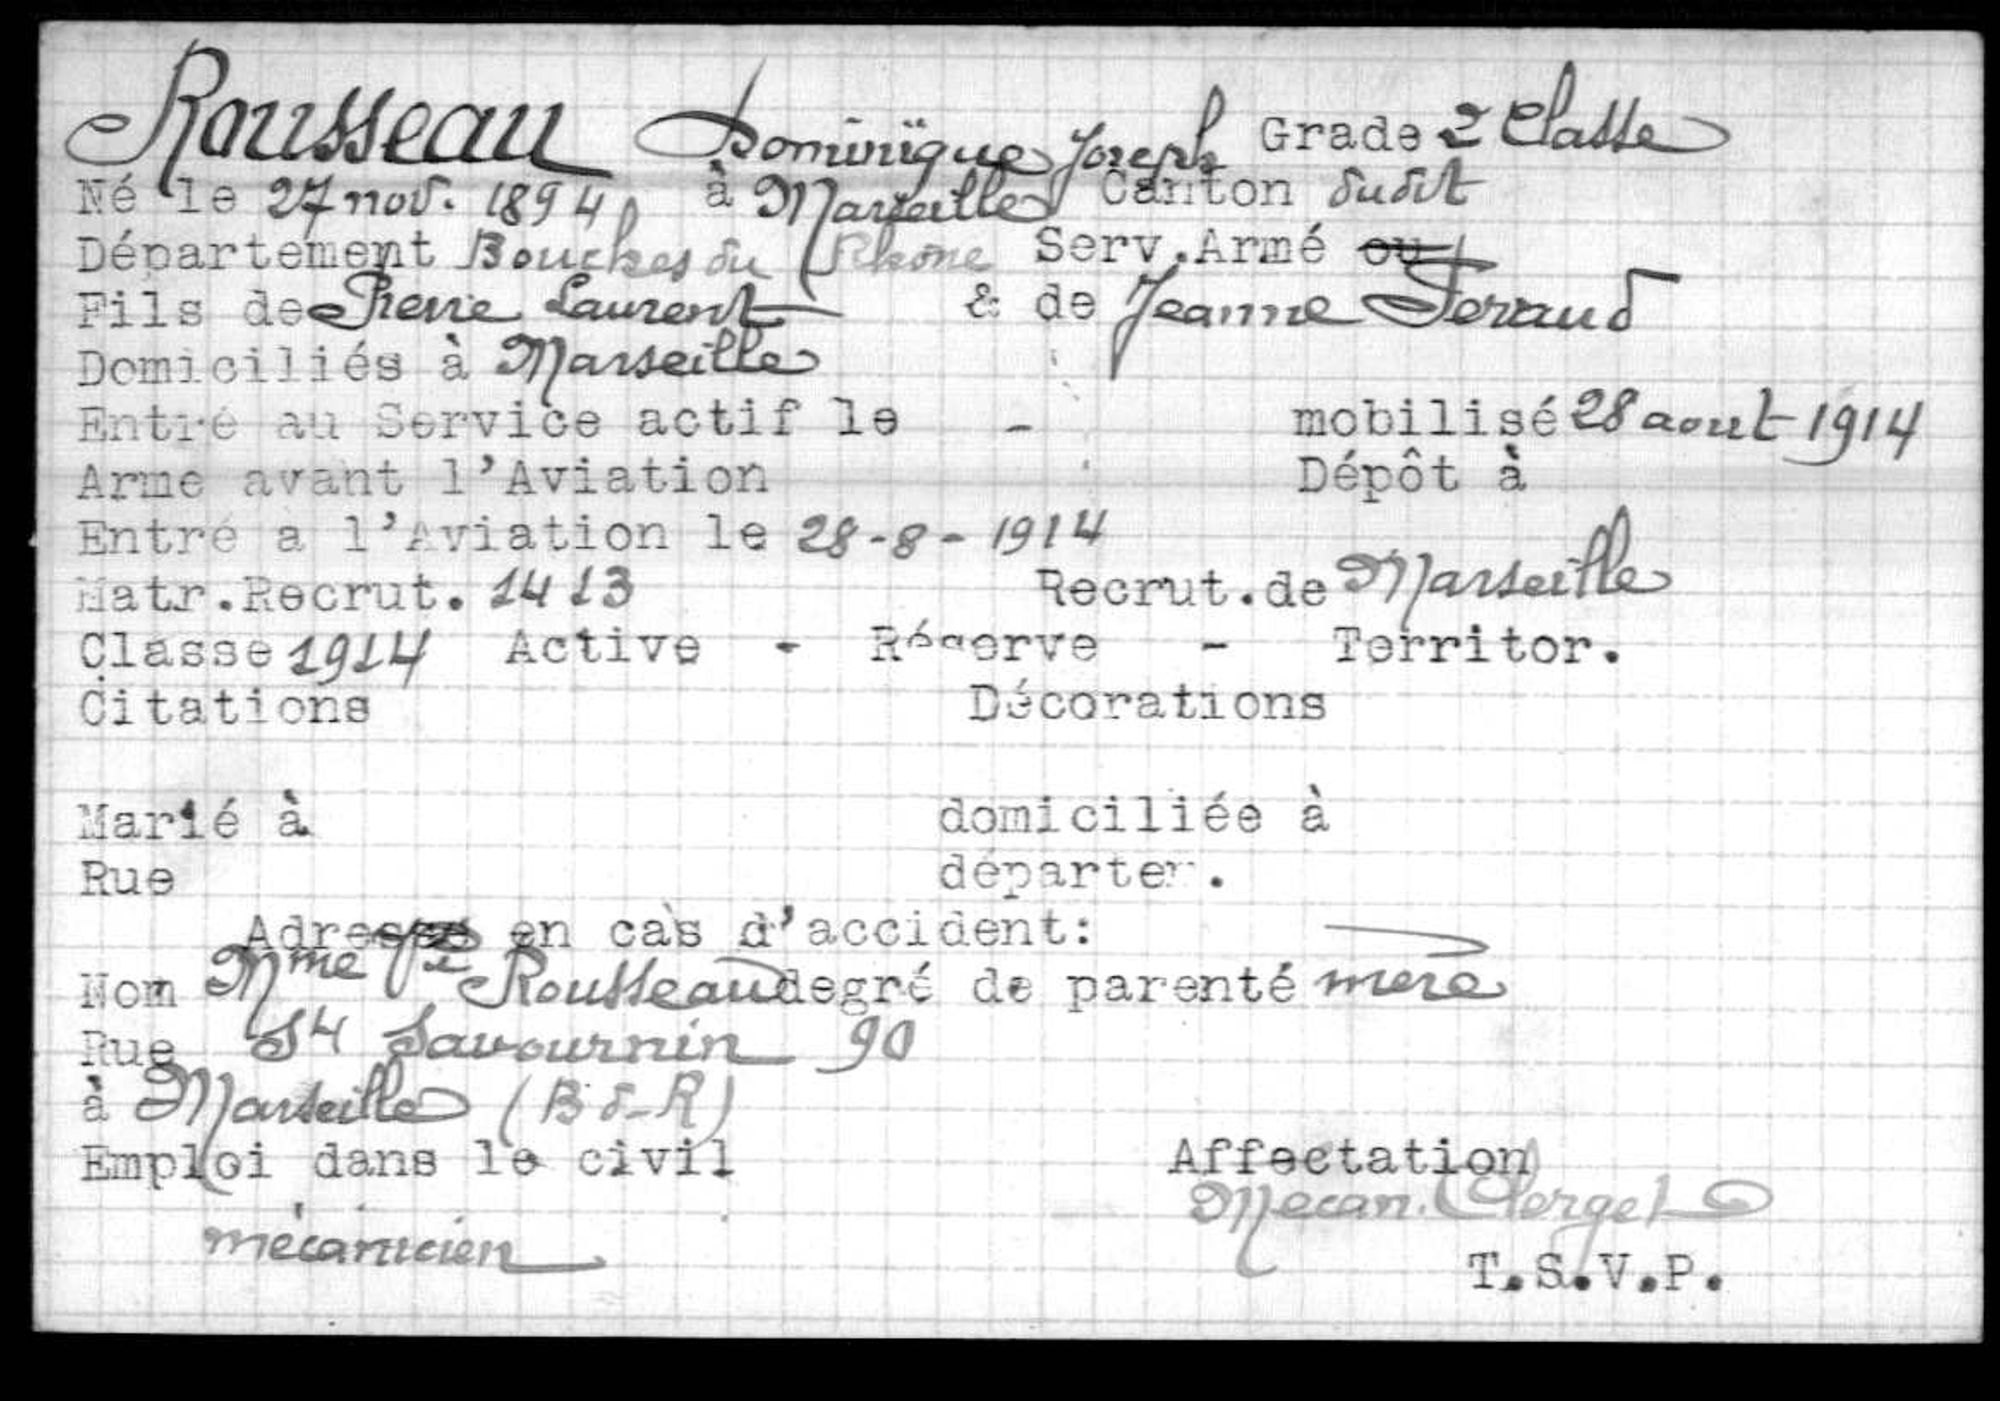 Rousseau Dominique Joseph Grade 2 Classe
Né le 27 nov. 1894 à Marseille Canton dudit
Département Bouches du Rhône Serv.Armé ou
Fils de Pierre Laurent & de Jeanne Feraud
Domiciliés à Marseille
Entré au Service actif le - mobilisé 28 aout 1914
Arme avant l'Aviation Dépôt à
Entré a l'Aviation le 28-8-1914
Matr.Recrut. 1413 Recrut.de Marseille
Classe 1914 Active - Réserve - Territor.
Citations Décorations
Marié à domiciliée à
Rue départem.
Adresse en cas d'accident:
Nom Mme Vve Rousseau degré de parenté mère
Rue St Savournin 90
à Marseille (B d-R)
Emploi dans le civil Affectation
mécanicien Mecan. Clerget
T.S.V.P.